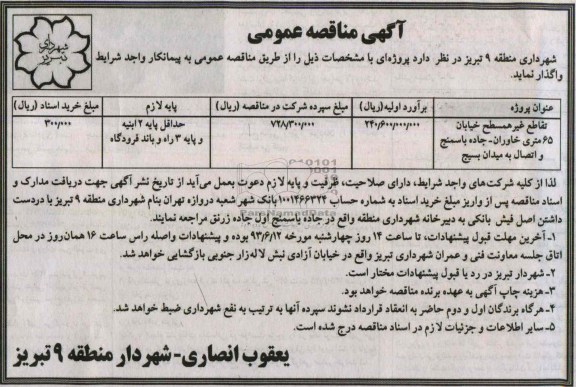 آگهی مناقصه عمومی
شهرداری تبریز
شهرداری منطقه ۹ تبریز در نظر دارد پروژه‌ای با مشخصات ذیل را از طریق مناقصه عمومی به پیمانکار واجد شرایط
واگذار نماید.
عنوان پروژه | برآورد اولیه(ریال) | مبلغ سپرده شرکت در مناقصه (ریال) | پایه لازم | مبلغ خرید اسناد (ریال)
تقاطع غیرهمسطح خیابان | ۲۴۰/۶۰۰/۰۰۰/۰۰۰ | ۷۲۸/۳۰۰/۰۰۰ | حداقل پایه ۲ ابنیه | ۳۰۰/۰۰۰
۶۵متری خاوران-جاده باسمنج | و پایه ۳ راه و باند فرودگاه
و اتصال به میدان بسیج
لذا از کلیه شرکت‌های واجد شرایط، دارای صلاحیت، ظرفیت و پایه لازم دعوت بعمل می‌آید از تاریخ نشر آگهی جهت دریافت مدارک و
اسناد مناقصه پس از واریز مبلغ خرید اسناد به شماره حساب ۱۰۰۱۴۶۶۳۲۴ بانک شهر شعبه دروازه تهران بنام شهرداری منطقه ۹ تبریز با دردست
داشتن اصل فیش بانکی به دبیرخانه شهرداری منطقه واقع در جاده باسمنج اول جاده زرنق مراجعه نمایند.
۱-آخرین مهلت قبول پیشنهادات، تا ساعت ۱۴ روز چهارشنبه مورخه ۹۳/۶/۱۲ بوده و پیشنهادات واصله راس ساعت ۱۶ همان‌روز در محل
اتاق جلسه معاونت فنی و عمران شهرداری تبریز واقع در خیابان آزادی نبش لاله‌زار جنوبی بازگشایی خواهد شد.
۲-شهردار تبریز در رد یا قبول پیشنهادات مختار است.
۳-هزینه چاپ آگهی به عهده برنده مناقصه خواهد بود.
۴-هرگاه برندگان اول و دوم حاضر به انعقاد قرارداد نشوند سپرده آنها به ترتیب به نفع شهرداری ضبط خواهد شد.
۵-سایر اطلاعات و جزئیات لازم در اسناد مناقصه درج شده است.
یعقوب انصاری-شهردار منطقه ۹ تبریز